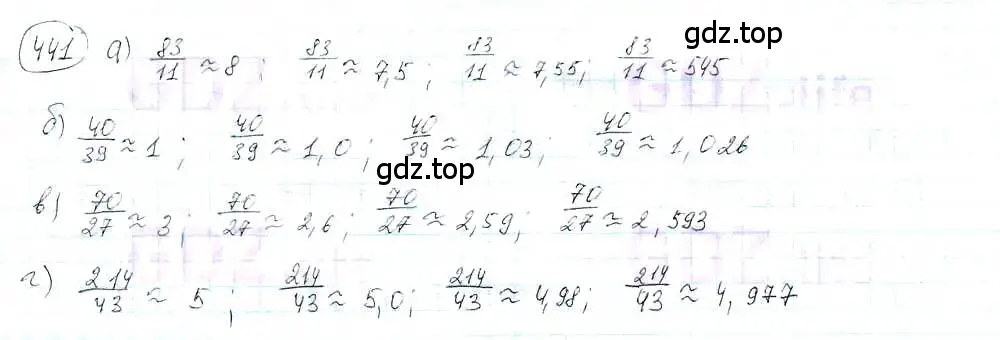 gdz.top
441 а) 83/11 ≈ 8 ; 83/11 ≈ 7,5 ; 83/11 ≈ 7,55; 83/11 ≈ 545
б) 40/39 ≈ 1 ; 40/39 ≈ 1,0 ; 40/39 ≈ 1,03; 40/39 ≈ 1,026
gdz.top
в) 70/27 ≈ 3 ; 70/27 ≈ 2,6 ; 70/27 ≈ 2,59; 70/27 ≈ 2,593
г) 214/43 ≈ 5 ; 214/43 ≈ 5,0; 214/43 ≈ 4,98; 214/43 ≈ 4,977
gdz.top